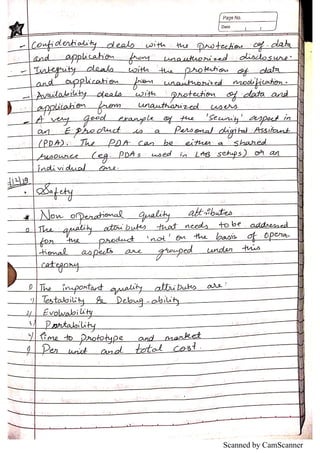 Page No.
Date
- Confidentiality deals with the protection of data
and application from unauthorized disclosure.
- Integrity deals with the protection of data
and application from unauthorized modification.
- Availability deals with protection of data and
application from unauthorized users
- A very good example of the 'Security' aspect in
an E product is a Personal digital Assistant
(PDA). The PDA can be either a shared
resource (eg PDAs used in LAB setups) or an
individual one.
• Safety
* Non operational quality attributes
The quality attributes that needs to be addressed
for the product 'not' on the basis of opera
tional aspects are grouped under this
category
The important quality attributes are:
Testability & Debug-ability
Evolvability
Portability
Time to prototype and market
Per unit and total cost.
Scanned by CamScanner